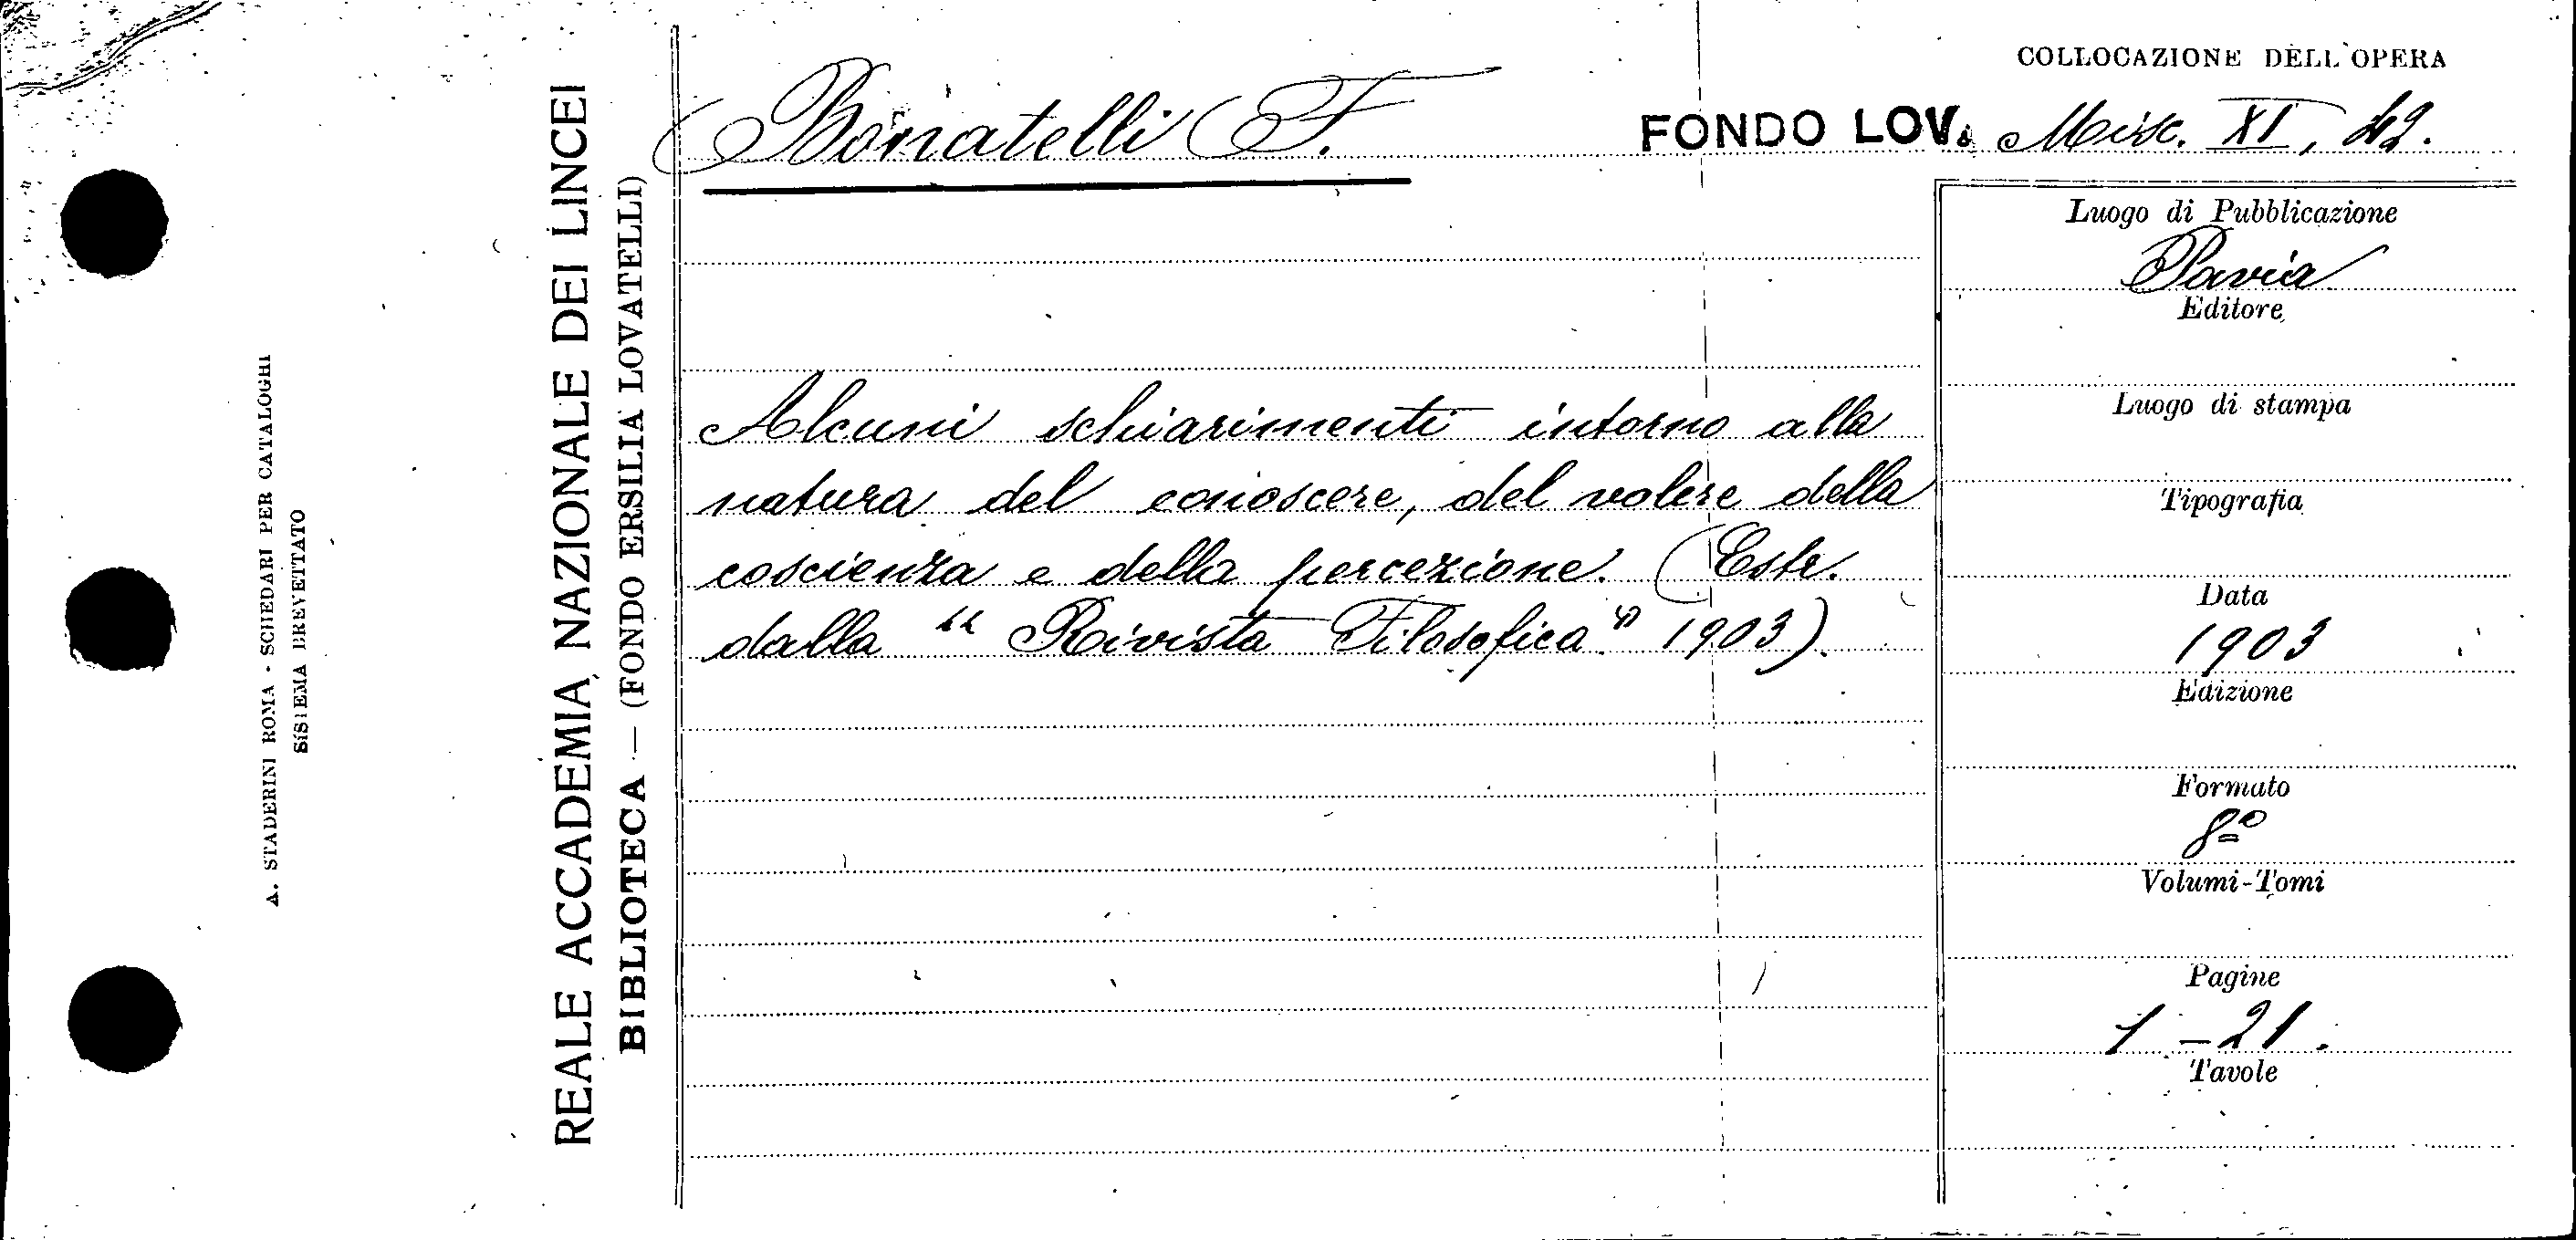 A. STADERINI ROMA - SCHEDARI PER CATALOGHI
SISTEMA BREVETTATO
REALE ACCADEMIA NAZIONALE DEI LINCEI
BIBLIOTECA — (FONDO ERSILIA LOVATELLI)
Bonatelli F.
COLLOCAZIONE DELL'OPERA
FONDO LOV. Misc. XI, 42.
Alcuni schiarimenti intorno alla
natura del conoscere, del volere della
coscienza e della percezione. (Estr.
dalla "Rivista Filosofica" 1903).
Luogo di Pubblicazione
Pavia
Editore
Luogo di stampa
Tipografia
Data
1903
Edizione
Formato
8º
Volumi-Tomi
Pagine
1-21.
Tavole